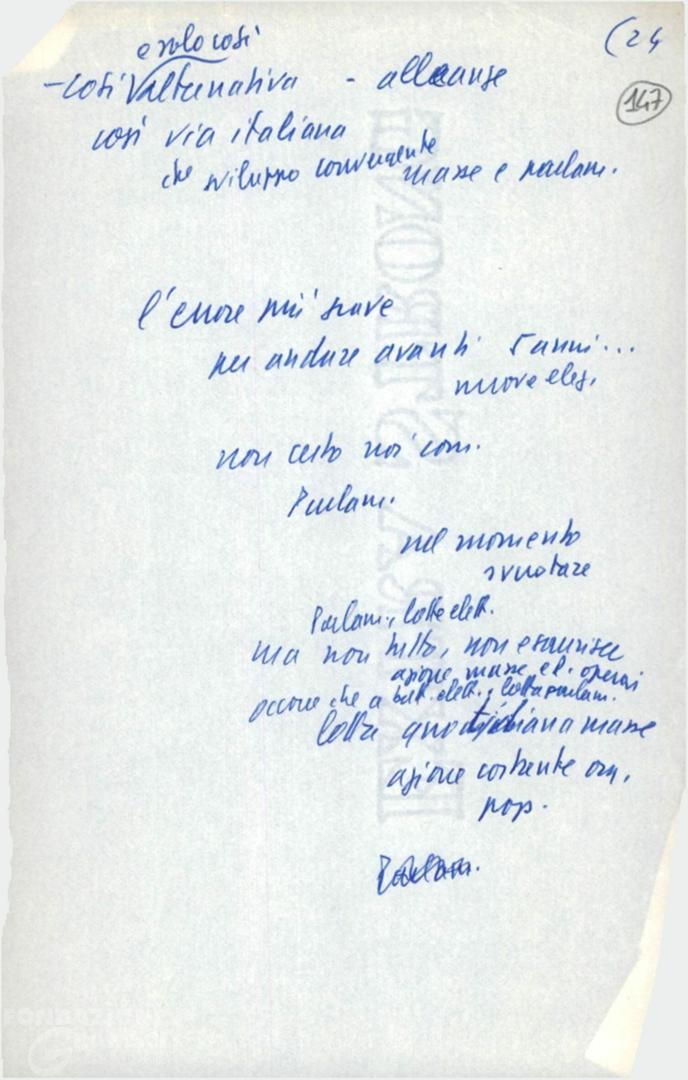 (24
147
e solo così
- così alternativa - alleanze
così via italiana
che sviluppo conveniente
masse e parlam.
l'errore più grave
per andare avanti 5 anni...
nuove elez.
non certo noi com.
Parlam.
nel momento
svuotare
Parlam., lotte elett.
ma non tutto, non esaurisce
azione masse e l. operai
occorre che a batt. elett., lotta parlam.
lotta quotidiana masse
azione costruente org.
pop.
Parlam.